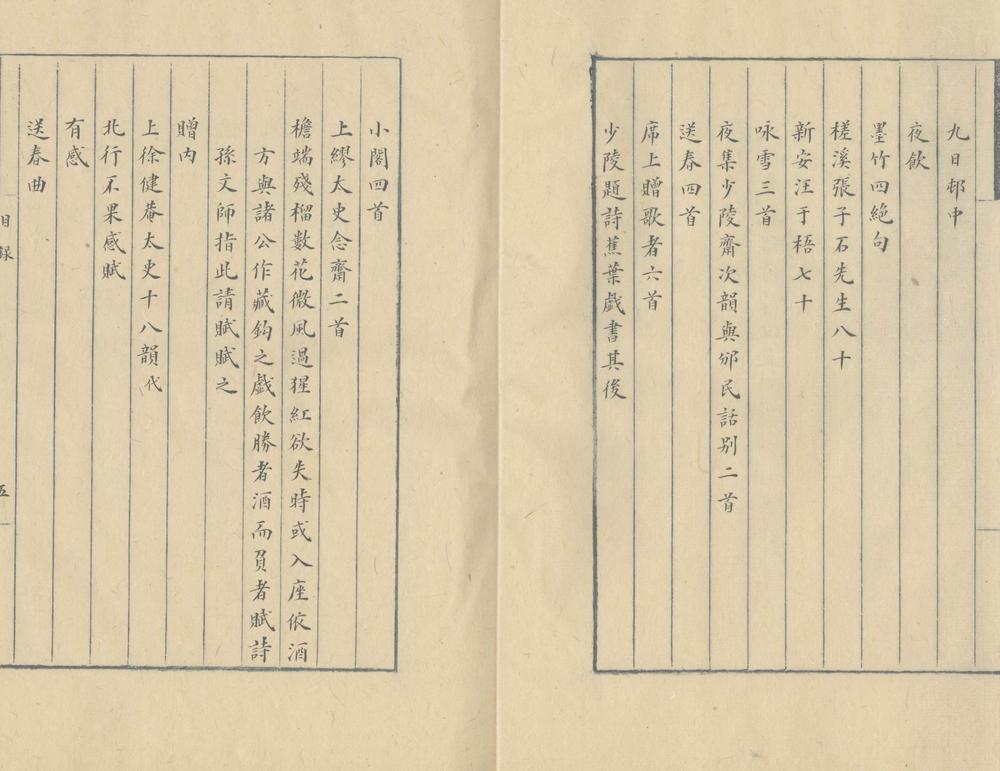 九日邨中
夜飲
墨竹四絕句
槎溪張子石先生八十
新安汪于梧七十
咏雪三首
夜集少陵齋次韻與邠民話别二首
送春四首
席上贈歌者六首
少陵題詩蕉葉戯書其後
小閣四首
上繆太史念齋二首
檐端殘榴數花微風過猩紅欲失時或入座依酒
方與諸公作藏鈎之戯飲勝者酒而負者賦詩
孫文師指此請賦賦之
贈内
上徐健菴太史十八韻代
北行不果感賦
有感
送春曲
目錄
五